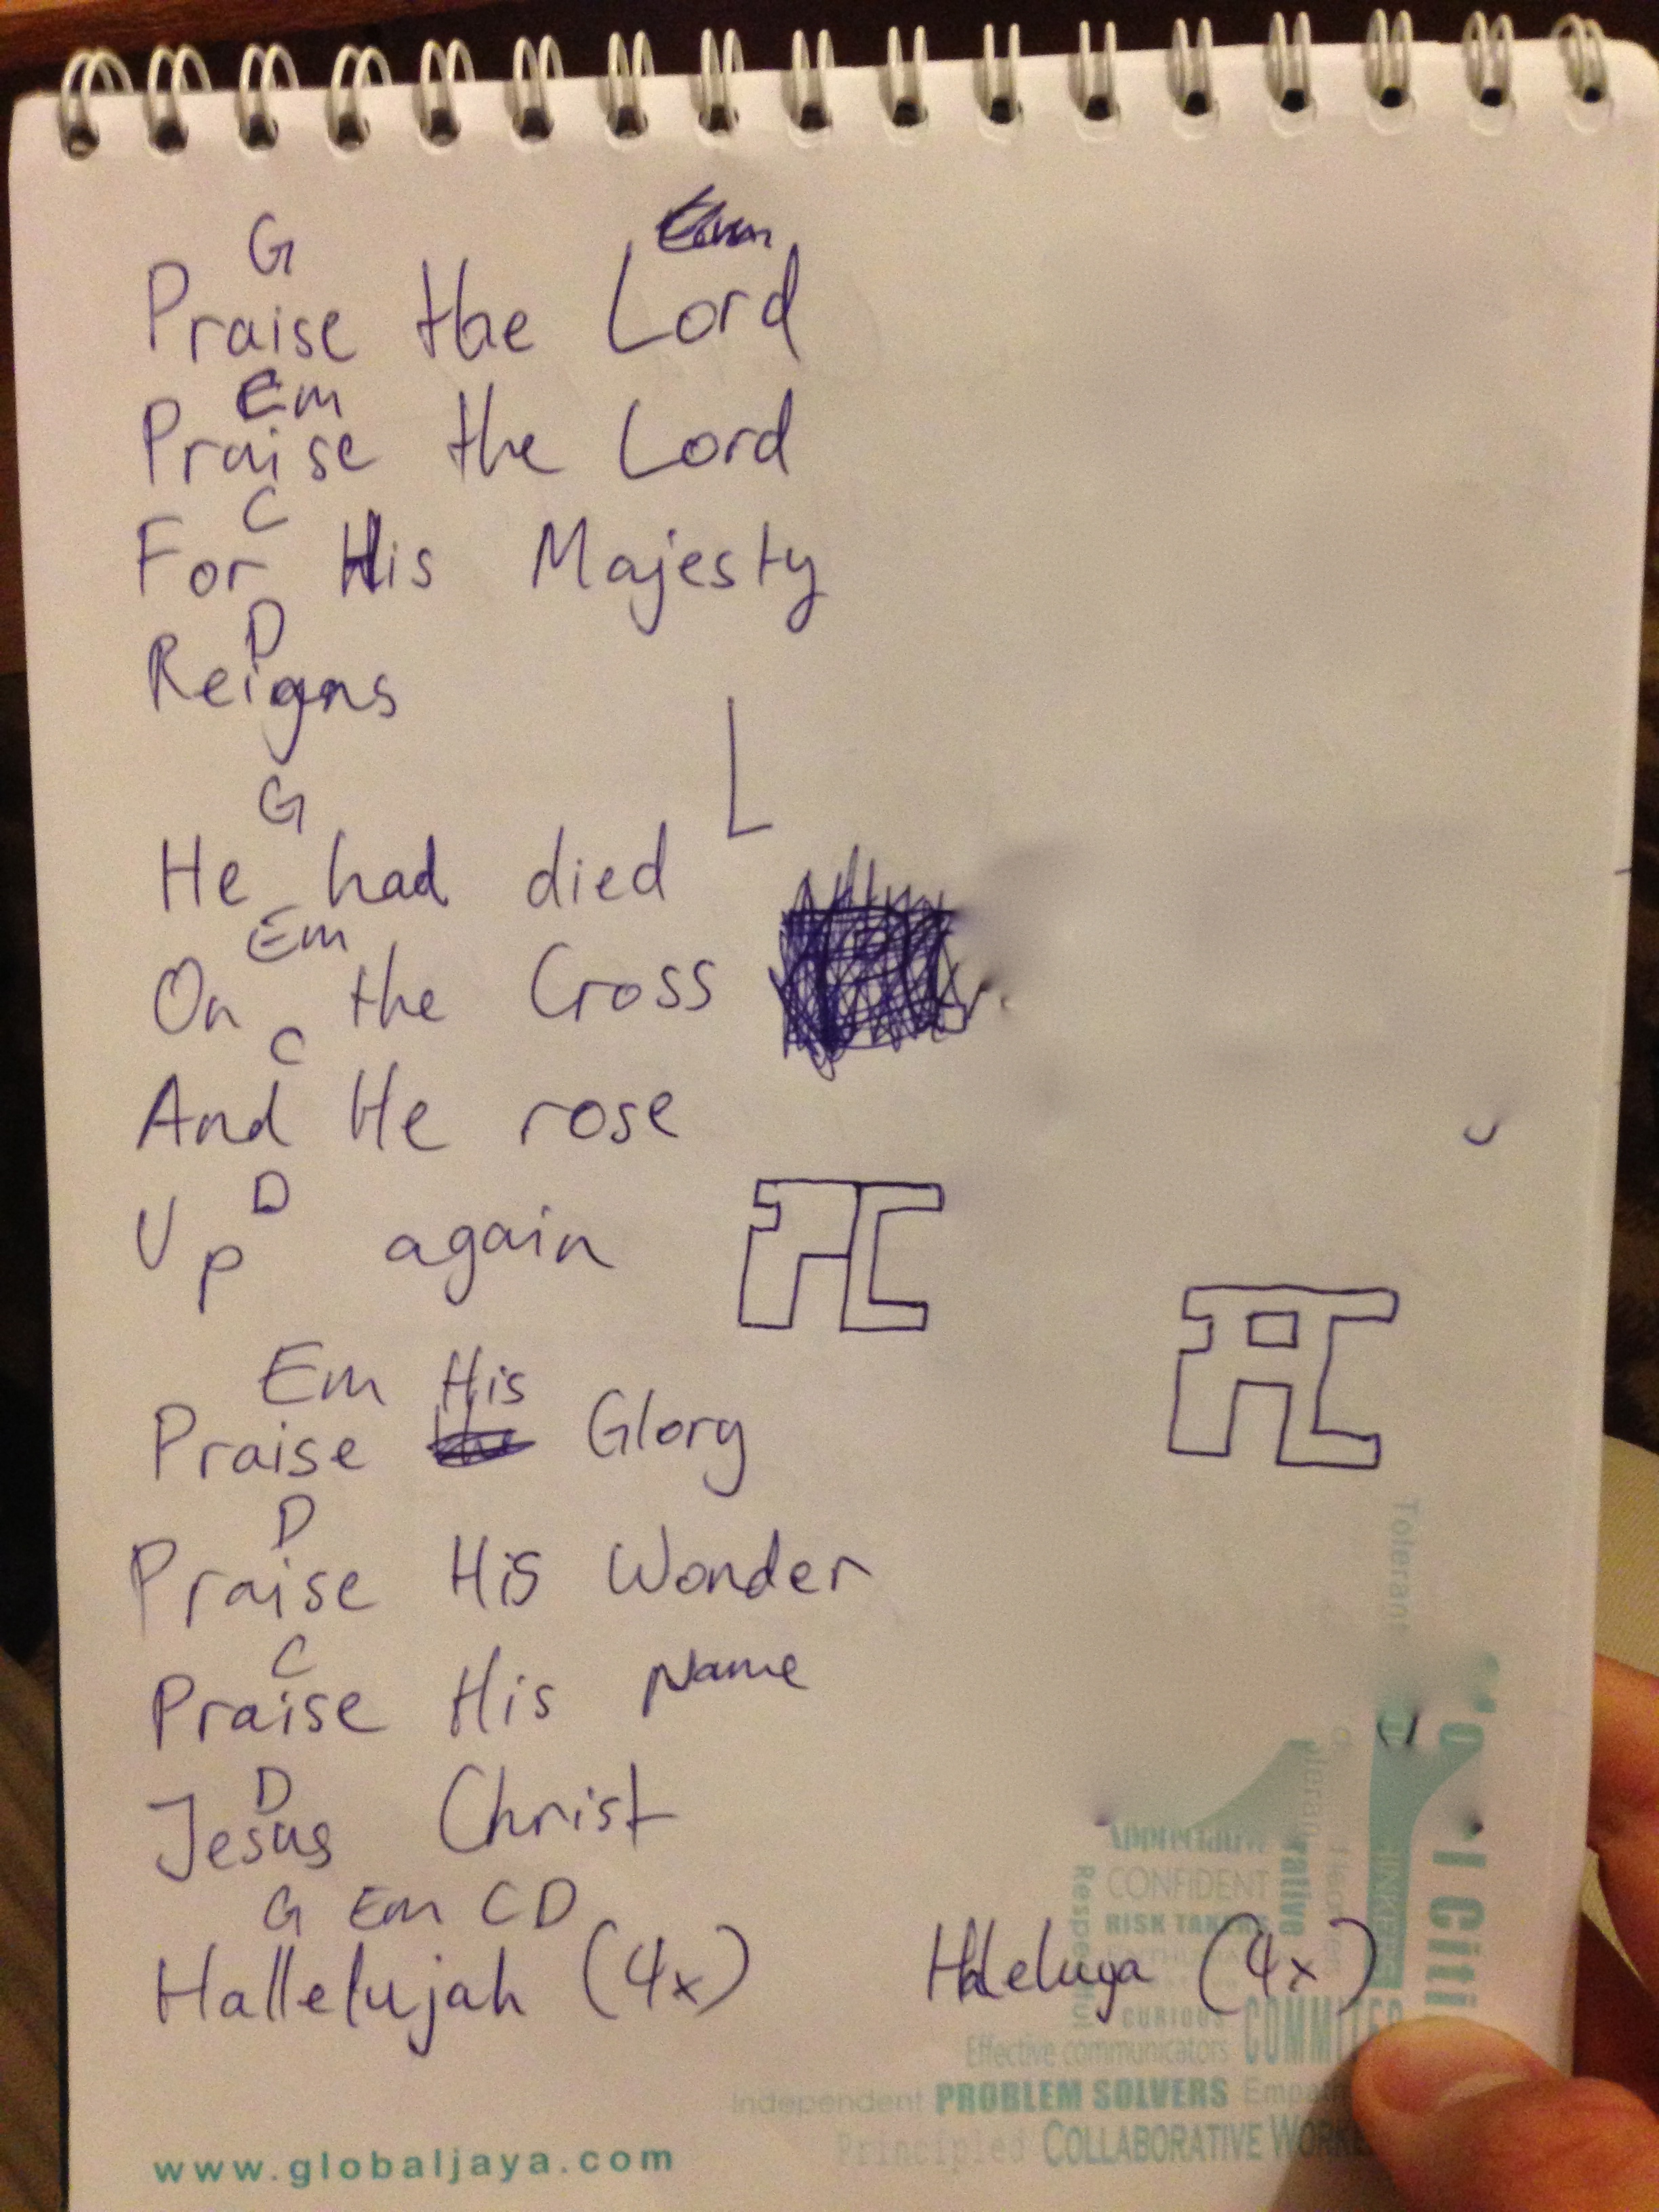 G
Praise the Lord
Em
Praise the Lord
C
For His Majesty
D
Reigns
L
G
He had died
Em
On the Cross
C
And He rose
D
Up again
Em His
Praise Glory
D
Praise His Wonder
C
Praise His Name
D
Jesus Christ
G Em C D
Hallelujah (4x)
Haleluya (4x)
Tolerant
CONFIDENT
RISK TAKERS
CURIOUS
Effective communicators
Independent PROBLEM SOLVERS
Principled COLLABORATIVE
www.globaljaya.com